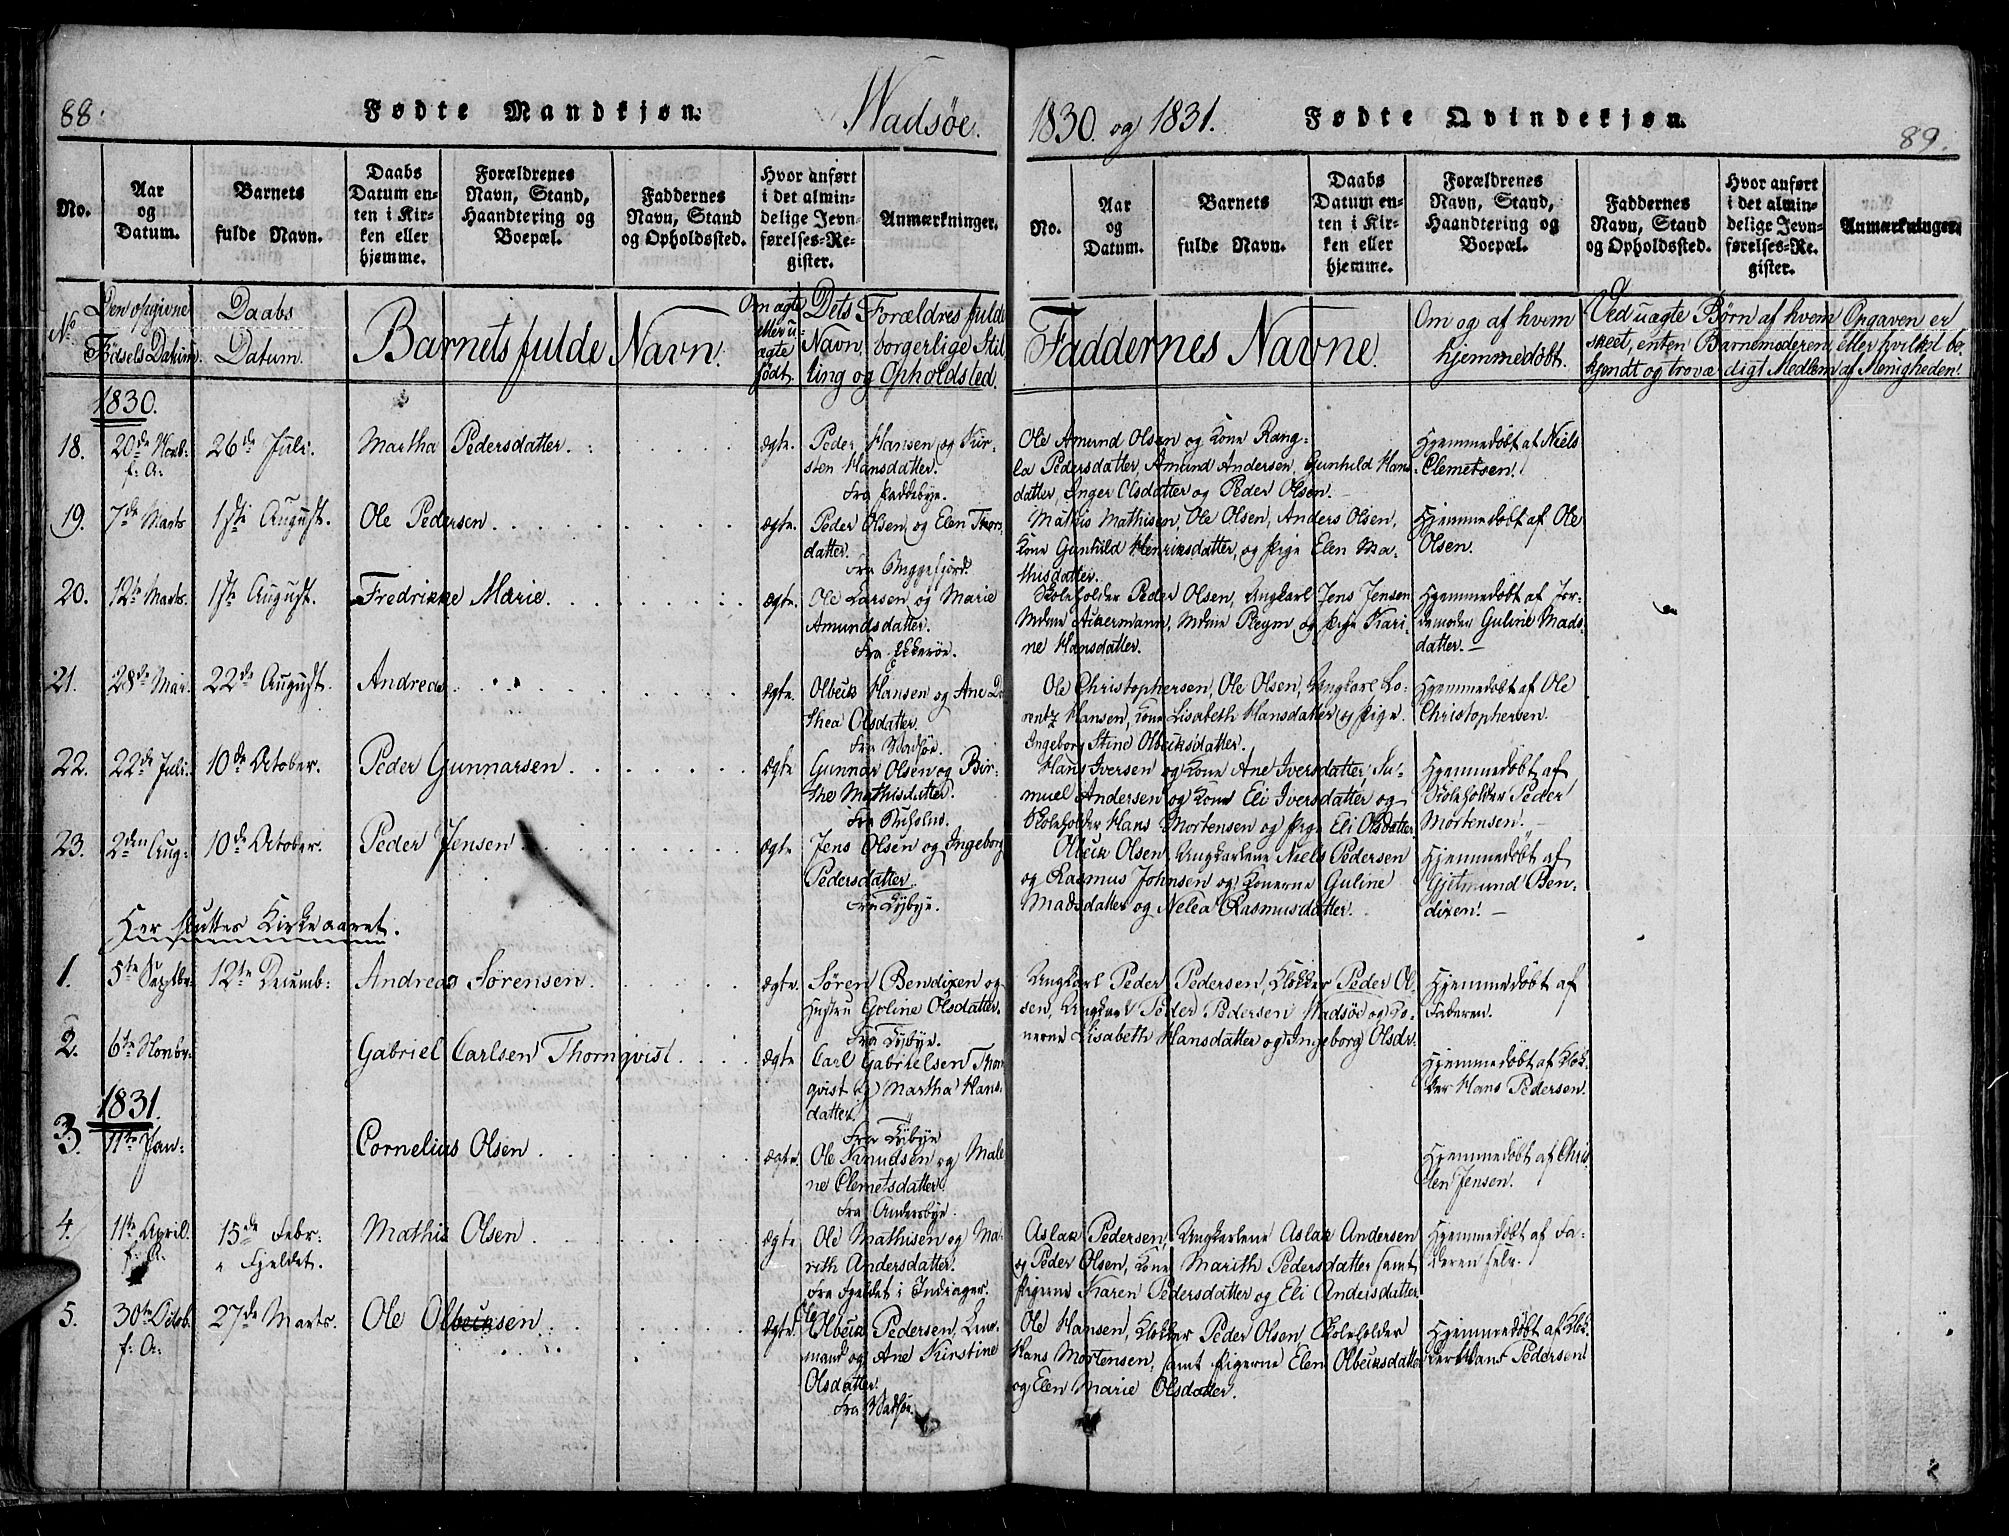 88.
Fødte Mandkjøn.
Wadsöe.
1830. og 1831.
Fødte Qvindekjøn.
89.
No.
Aar
og
Datum.
Barnets
fulde Navn.
Daabs
Datum en-
ten i Kir-
ken eller
hjemme.
Forældrenes
Navn, Stand,
Haandtering og
Boepæl.
Faddernes
Navn, Stand
og Opholdssted.
Hvor anført
i det almin-
delige Jevn-
førelses-Re-
gister.
Anmærkninger.
No.
Aar
og
Datum.
Barnets
fulde Navn.
Daabs
Datum en-
ten i Kir-
ken eller
hjemme.
Forældrenes
Navn, Stand,
Haandtering og
Boepæl.
Faddernes
Navn, Stand
og Opholdssted.
Hvor anført
i det almin-
delige Jevn-
førelses-Re-
gister.
Anmærkninger.
No
Den opgivne
Födsels Datum
Daabs
Datum.
Barnets fulde Navn.
Om ægte
eller u-
ægte
födt.
Dets Forældres fulde
Navn, borgerlige Stil-
ling og Opholdsted.
Faddernes Navne.
Om og af hvem
hjemmedöbt.
Ved uægte Børn af hvem Opgaven er
skeet, enten Barnemoderen, eller hvilket be-
kjendt og troværdigt Medlem af Menigheden!
1830.
18. 20de Novb: 26de Juli. Martha Pedersdatter. ægte.
f: A:
Peder Hansen og Kir-
sten Hansdatter.
Fra Paddebye.
Ole Amund Olsen og Kone Rang-
la Pedersdatter, Amund Andersen, Gunhild Hans-
datter, Inger Olsdatter og Peder Olsen.
Hjemmedöbt af Niels
Clemetsen!
19. 7de Marts 1ste August. Ole Pedersen. ægte.
Peder Olsen og Elen Thors-
datter.
Fra Buggefjord.
Mathis Mathisen, Ole Olsen, Anders Olsen,
Kone Gunhild Henriksdatter, og Pige Elen Ma-
thisdatter.
Hjemmedöbt af Ole
Olsen.
20. 12te Marts. 1ste August. Fredrikke Marie. ægte.
Ole Larsen og Marie
Amundsdatter.
Fra Ekkeröe.
Skoleholder Peder Olsen, Ungkarl Jens Jensen
Mdme Ackermann, Mdme Pleym og Pige Kari-
ne Hansdatter.
Hjemmedöbt af Jor-
demoder Guline Mads-
datter. —
21. 28de Mai. 22de August. Andreas. ægte.
Olbeck Hansen og Ane Do-
thea Olsdatter.
Fra Wadsöe.
Ole Christophersen, Ole Olsen, Ungkarl Lo-
rentz Hansen, Kone Lisabeth Hansdatter og Pige
Ingeborg Stine Olbeuksdatter.
Hjemmedöbt af Ole
Christophersen.
22. 22de Juli. 10de October. Peder Gunnarsen ægte
Gunnar Olsen og Bir-
the Mathisdatter.
Hans Iversen og Kone Ane Iversdatter, Sa-
muel Andersen og Kone Eli Iversdatter og
Skoleholder Hans Mortensen og Pige Eli Olsdatter
Hjemmedöbt af
Skoleholder Peder
Mortensen!
23. 2den Aug: 10de October. Peder Jensen ægte
Jens Olsen og Ingeborg
Pedersdatter.
Fra Kybye.
Olbeuk Olsen, Ungkarlene Niels Pedersen
og Rasmus Johnsen og Konerne Guline
Madsdatter og Nelea Rasmusdatter.
Hjemmedöbt af
Gjetmund Ben-
dixen! —
Her sluttes Kirkeaaret.
1. 5te Septbr. 12te Decemb: Andreas Sörensen. ægte.
Sören Bendixen og
Hustru Goline Olsdatter.
Fra Kybye.
Ungkarl Peder Pedersen, Klokker Peder Ol-
sen, Ungkarl Peder Pedersen Wadsöe og Ko-
nerne Lisabeth Hansdatter og Ingeborg Olsdr.
Hjemmedöbt af
Faderen.
2. 6te Novbr. Gabriel Carlsen Thornqvist. ægte
Carl Gabrielsen Thorn-
qvist og Martha Hans-
datter.
Fra Kybye
Hjemmedöbt af Klok-
ker Hans Pedersen.
1831.
3. 11te Jan: Cornelius Olsen. ægte.
Ole Knudsen og Male-
ne Clemetsdatter.
Fra Andersbye.
Hjemmedöbt af Chris-
ten Jensen.
4. 11te April. 15de Febr: Mathis Olsen ægte
f: A:
Fjeldet.
Ole Mathisen og Ma-
reth Andersdatter.
Fra Fjeldet i Indiager.
Aslak Pedersen, Ungkarlene Aslak Andersen
og Peder Olsen, Kone Marith Pedersdatter samt
Pigerne Karen Pedersdatter og Eli Andersdatter.
Hjemmedöbt af Fa-
deren selv.
5. 30te Octob. 27de Marts. Ole Olbeuksen ægte.
f: A:
Ole
Olbeuk Pedersen, Qvæ-
mand og Ane Kirstine
Olsdatter.
Fra Wadsöe.
Ole Hansen, Klokker Peder Olsen, Skoleholder
Hans Mortensen, samt Pigerne Elen Olbeuksdatter
og Elen Marie Olsdatter.
Hjemmedöbt af Klok-
ker Hans Pedersen!